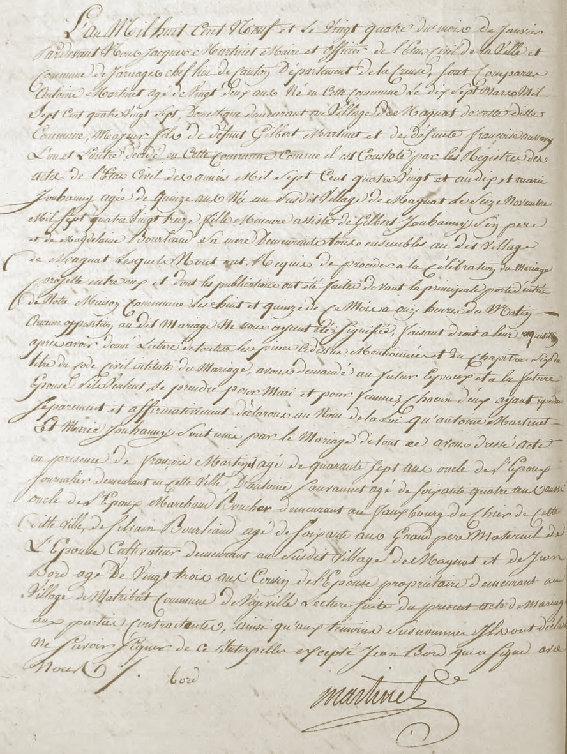 L'an Mil huit Cent Neuf et le Vingt quatre du mois de Janvier
Pardevant Nous Jacques Martinet Maire et officier de l'Etat Civil de la Ville et
Commune de Jarnages chef lieu de Canton, Département de la Creuse, sont Comparus
Antoine Martinet agé de Vingt deux ans Né en Cette Commune le dix Sept Mars Mil
Sept Cent quatre Vingt Sept Domestique demeurant au Village de Maguat de cette ditte
Commune, Majeur fils de defunt Gilbert Martinet et de defunte françoise
L'un et L'autre décédé en Cette Commune Comme il est Constaté par les Registres des
actes de l'Etat Civil des années Mil Sept Cent quatre Vingt et an dix et Marie
Joubanny agée de quinze ans Née au Susdit Village de Maguat le Seize Novembre
Mil Sept quatre Vingt treize fille Mineure assistée de Gilbert Joubanny Son pere
et de Magdelaine Bourliaud Sa mere Demeurants tous ensembles au dit Village
de Maguat Lesquels Nous ont Requis de proceder a la Célébration du Mariage
projetté entre eux et dont les publications ont été faites devant la principale porte
de Notre Maison Commune les huit et quinze de Ce Mois a onze heures du Matin
Aucune opposition au dit Mariage Ne nous ayant été Signifiée, faisant droit a leur requisition
après avoir donné Lecture de toutes les pieces Cidessus Mentionnées et du Chapitre Six du
titre du Code Civil intitulé du Mariage, avons demandé au futur Epoux et a la future
Epouse s'ils Veulent se prendre pour Mari et pour femme, chacun d'eux ayant repondu
Separement et affirmativement declarons au Nom de la Loi qu'antoine Martinet
Et Marie Joubanny Sont unis par le Mariage de tout ce avons dressé acte
en presence de françois Martinet agé de quarante Sept ans oncle de L'Epoux
Journalier demeurant en cette Ville, D'antoine agé de Soixante quatre ans aussi
oncle de L'Epoux Marchand Boucher demeurant au fauxbourg du de Cette
ditte Ville, de Silvain Bourliaud agé de Soixante ans Grand pere Maternel de
L'Epouse Cultivateur demeurant au Susdit Village de Maguat et de Jean
Bord agé de Vingt trois ans Cousin de l'Epouse proprietaire demeurant au
Village de Commune de Vigeville Lecture faite du present acte de Mariage
aux parties Contractantes, ainsi qu'aux temoins Susnommés Ils ont déclaré
Ne Savoir Signer de ce Interpellés excepté Jean Bord qui a Signé avec
Nous
bord
martinet